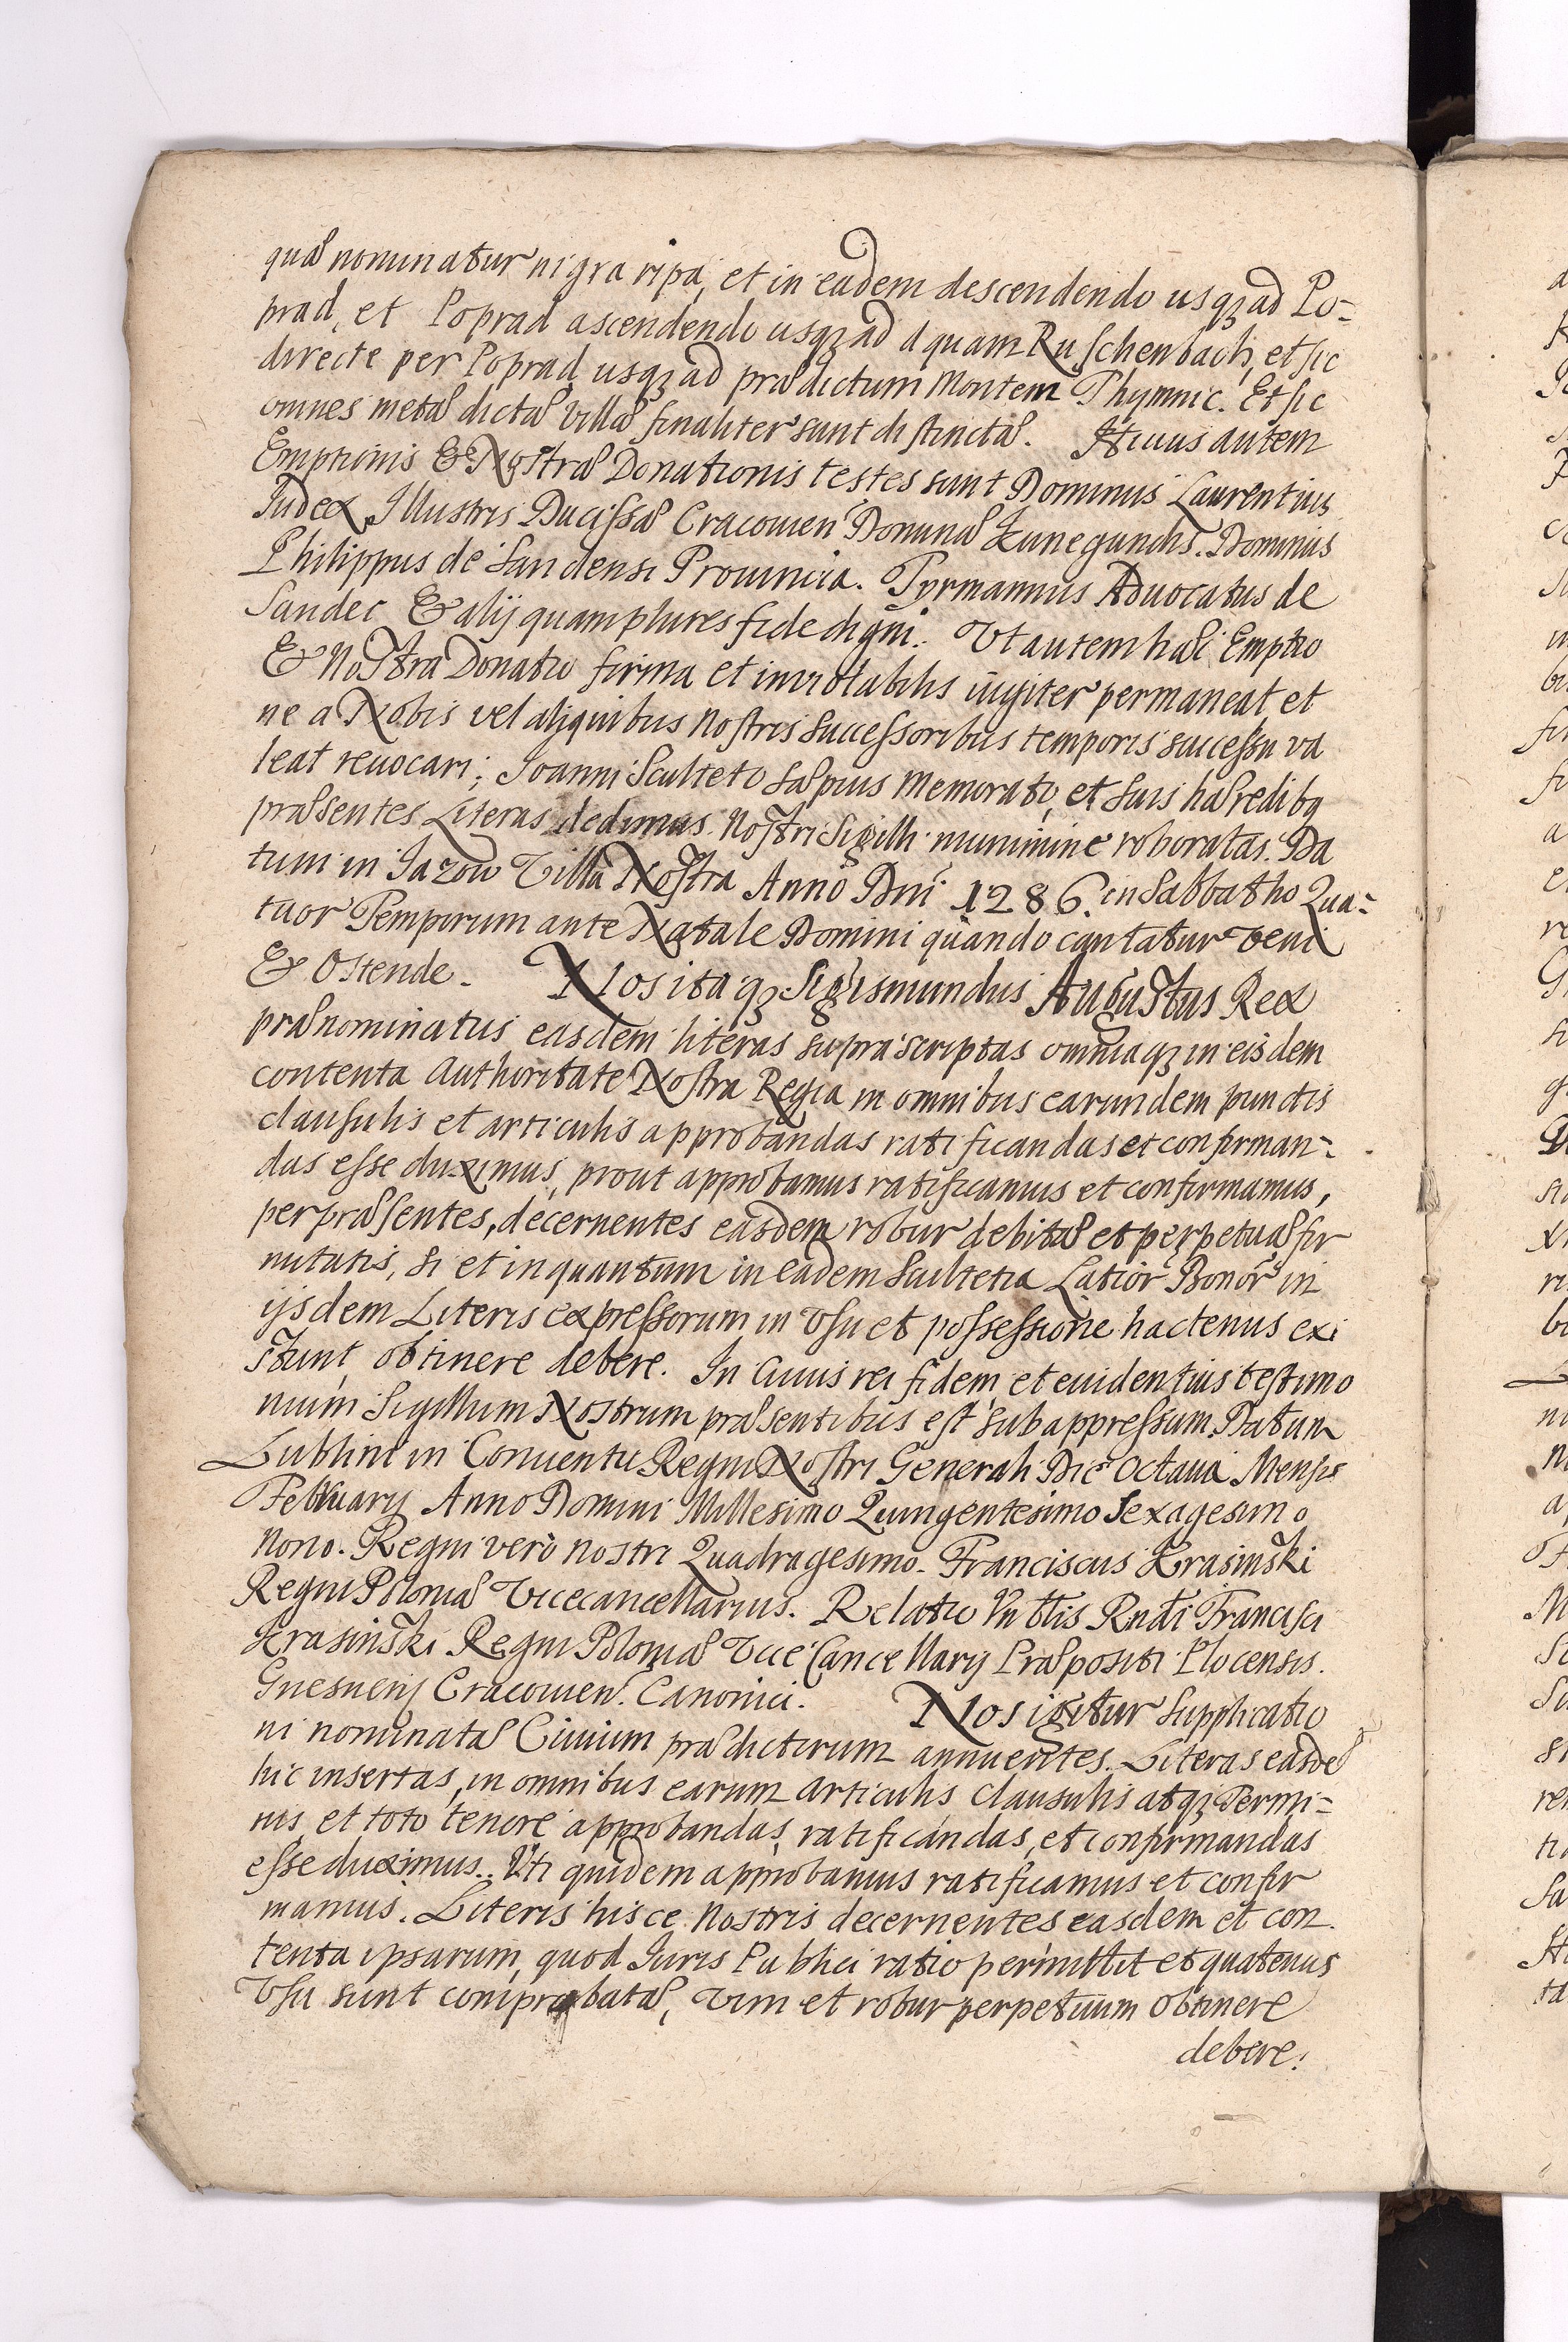 quæ nominatur nigra ripa, et in eadem descendendo usq; ad Po=
prad, et Poprad ascendendo usq; ad aquam Ruschenbach, et sic
directe per Poprad usq; ad prædictum Montem Thymnic. Et sic
omnes metæ dictæ villæ finaliter sunt distinctæ. Huius autem
Emptionis & Nostræ Donationis testes sunt Dominus Laurentius
Iudex Illustris Ducissæ Cracouien Dominæ Kunegundis. Dominus
Philippus de Sandensi Prouincia. Tyrmannus Aduocatus de
Sandec & alij quamplures fide digni. Vt autem hæc Emptio
& Nostra Donatio firma et inuiolabilis iugiter permaneat et
ne a Nobis vel aliquibus Nostris Successoribus temporis successu va
leat reuocari; Joanni Sculteto Sæpius Memorato, et Suis hæredibq
præsentes Literas dedimus Nostri Sigilli munimine roboratas. Da
tum in Sazow Villa Nostra Anno Dni 1286. in Sabbatho Qua=
tuor Temporum ante Natale Domini quando cantatur Veni
& Ostende. Nos itaq; Sigismundus Augustus Rex
prænominatus easdem literas suprascriptas omniaq; in eisdem
contenta Authoritate Nostra Regia in omnibus earundem punctis
clausulis et articulis approbandas ratificandas et confirman=
das esse duximus, prout approbamus ratificamus et confirmamus,
per præsentes, decernentes easdem robur debitæ et perpetuæ fir
mitatis, si et inquantum in eadem Scultetia Latior Bonor in
ijsdem Literis expressorum in Vsu et possessione hactenus exi
stunt, obtinere debere. In Cuius rei fidem et euidentius testimo
nium Sigillum Nostrum præsentibus est subappressum. Datum
Lublini in Conuentu Regni Nostri Generali Die Octaua Mensis
Februarij Anno Domini Millesimo Quingentesimo Sexagesimo
Nono. Regni verò nostri Quadragesimo. Franciscus Krasinski
Regni Poloniæ Vicecancellarius. Relatio Rndi Francisci
Krasinski Regni Poloniæ Vice Cancellarij Præpositi Plocensis.
Gnesnen Cracouien. Canonici. Nos igitur Supplicatio
ni nominatæ Ciuium prædictorum annuentes. Literas easdē
hic insertas, in omnibus earum Articulis Clausulis atq; Termi=
nis et toto tenore approbandas, ratificandas, et confirmandas
esse duximus. Vti quidem approbamus ratificamus et confir
mamus. Literis hisce Nostris decernentes easdem et con
tenta ipsarum, quod Iuris Publici ratio permittit et quatenus
Vsu sunt comprobatæ, Vim et robur perpetuum obtinere
debere.